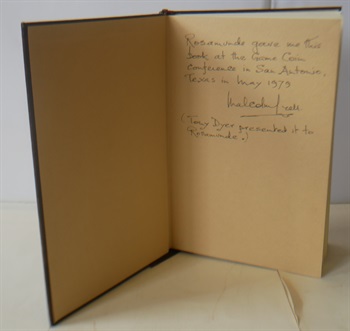 Rosamunde gave me this
book at the Game Coin
conference in San Antonio,
Texas in May 1979
Malcolm
(Tony Dyer presented it to
Rosamunde.)